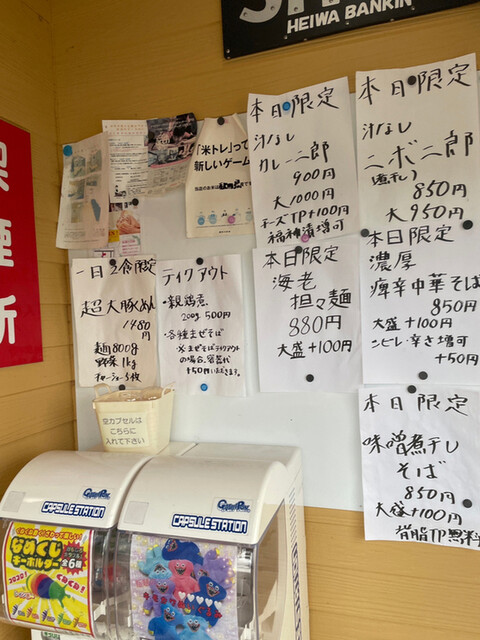 HEIWA BANKIN
喫煙所
「米トレ」って
新しいゲーム
本日限定
汁なし
カレー二郎
900円
大1000円
チーズTP+100円
福神漬増可
本日限定
汁なし
ニボ二郎
(煮干し)
850円
大950円
一日2食限定
超大豚めん
1480円
麺800g
野菜1kg
チャーシュー5枚
テイクアウト
・親鶏煮
200g 500円
・各種まぜそば
※まぜそばテイクアウト
の場合、容器代
+50円いただきます。
本日限定
海老
担々麺
880円
大盛+100円
本日限定
濃厚
痺辛中華そば
850円
大盛+100円
シビレ・辛さ増可
+50円
本日限定
味噌煮干し
そば
850円
大盛+100円
背脂TP無料
空カプセルは
こちらに
入れて下さい
CAPSULE STATION
CAPSULE STATION
なめくじ
キーホルダー
全6種